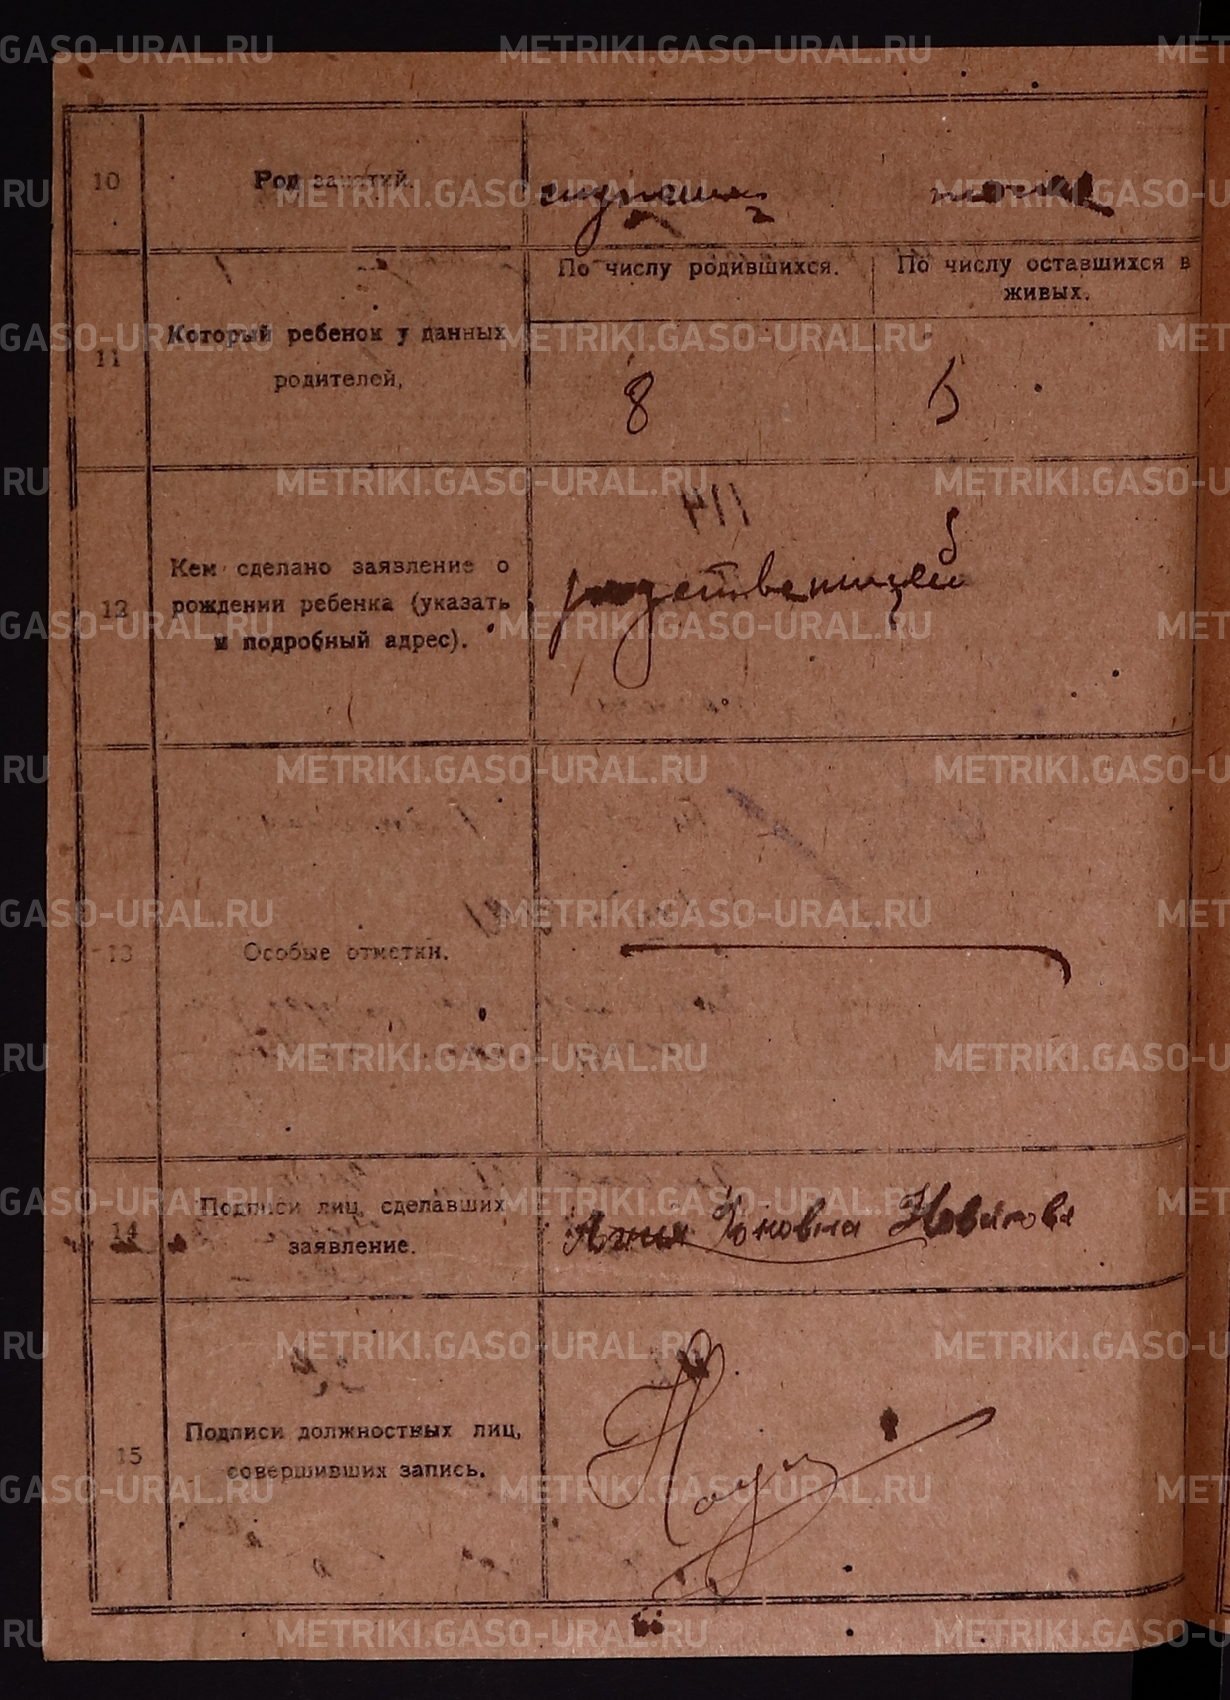 METRIKI.GASO-URAL.RU
10
Род занятий.
служащий
11
Который ребенок у данных
родителей,
По числу родившихся.
По числу оставшихся в
живых.
8
5
12
Кем сделано заявление о
рождении ребенка (указать
и подробный адрес).
родственницей
13
Особые отметки.
14
Подписи лиц, сделавших
заявление.
Новикова
15
Подписи должностных лиц,
совершивших запись.